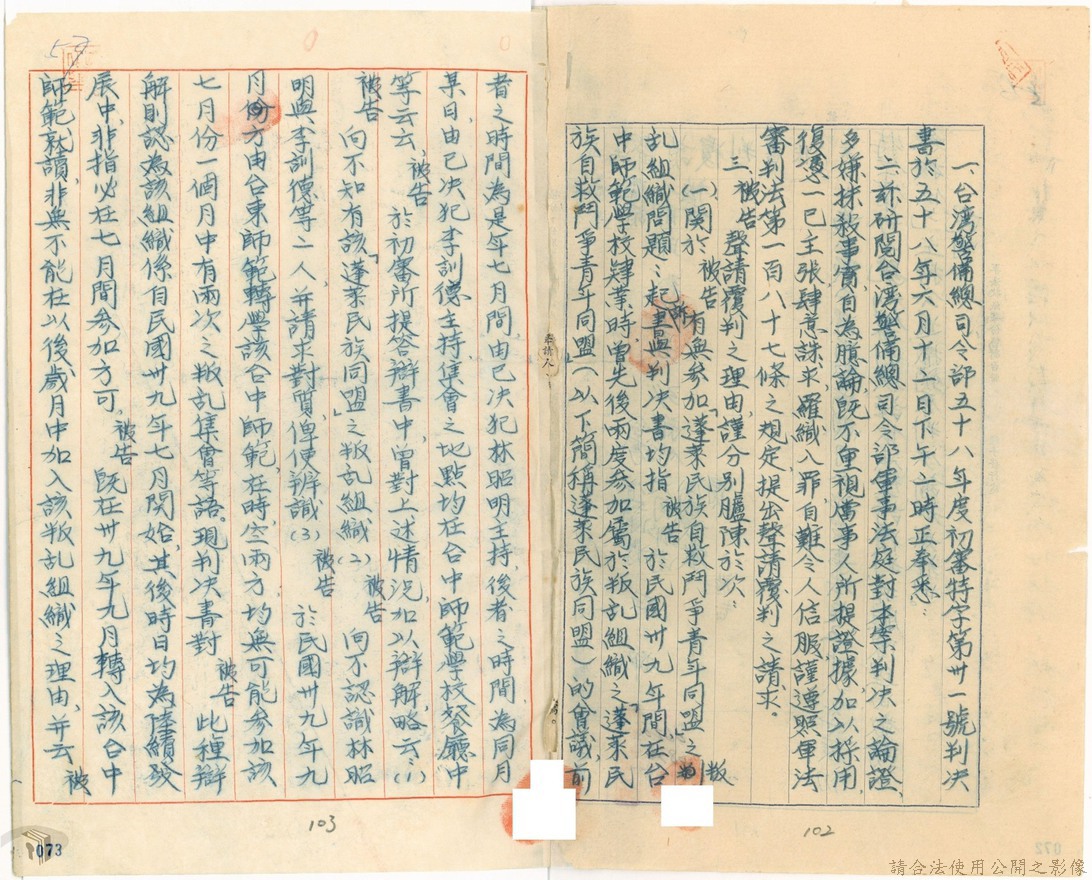 一、台湾警備總司令部五十八年度初審特字第卅一號判决
書於五十八年六月十二日下午一時正奉悉：
二、訴研閱台湾警備總司令部軍事法庭對本案判决之論證，
多嫌抹殺事實，自為臆論，既不重視膚事人所提證據，加以採用，
復憑一己主張肆意誅求，羅織入罪，自難令人信服謹遵照軍法
審判法第一百八十七條之規定，提出聲請覆判之請求。
三、被告聲請覆判之理由，謹分別臚陳於次：
(一)關於被告有無參加「蓬萊民族自救鬥爭青年同盟」之叛
乱組織問題：起訴書與判决書均指被告於民國卅九年間，在台
中師範學校肄業時，曾先後兩度参加屬於叛乱組織之「蓬萊民
族自救鬥爭青年同盟（以下簡稱蓬萊民族同盟）的會議，前
者之時間為是年七月間，由已决犯林昭明主持，後者之時間為同月
某日，由已决犯李訓德主持，集會之地點均在台中師範學校餐廳中
等云云，被告於初審所提答辯書中，曾對上述情況加以辯解，略云：(1)
被告向不知有該「蓬萊民族同盟」之叛乱組織(2)被告向不認識林昭
明與李訓德等二人，并請求對質，俾使辨識(3)被告於民國卅九年九
月份方由台東師範轉學該台中師範，在時、空兩方，均無可能參加該
七月份一個月中有兩次之叛乱集會等語。現判决書對被告此種辯
解則認為該組織係自民國卅九年七月開始，其後時日均為陸續發
展中，非指必在七月間參加方可，被告既在卅九年九月轉入該台中
師範就讀，非無不能在以後歲月中加入該叛乱組織之理由，并云被
聲請人
102
103
073
072
請合法使用公開之影像